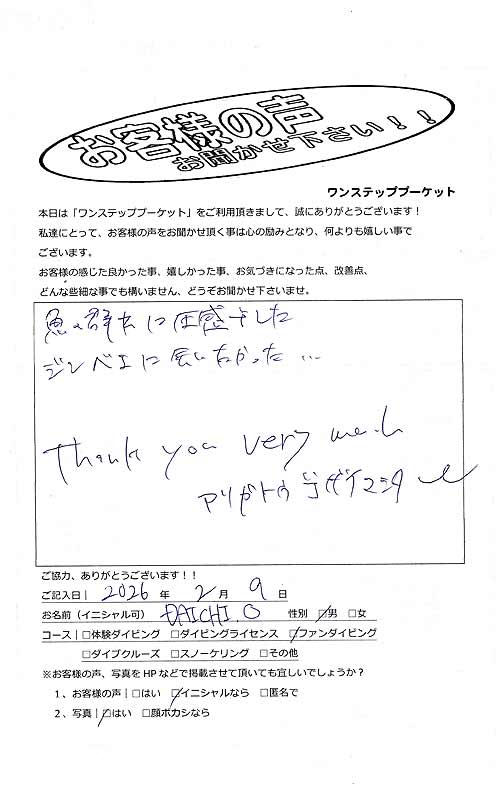 お客様の声
お聞かせ下さい！！
ワンステッププーケット
本日は「ワンステッププーケット」をご利用頂きまして、誠にありがとうございます！
私達にとって、お客様の声をお聞かせ頂く事は心の励みとなり、何よりも嬉しい事で
ございます。
お客様の感じた良かった事、嬉しかった事、お気づきになった点、改善点、
どんな些細な事でも構いません、どうぞお聞かせ下さいませ。
魚の群れに圧感でした
ジンベエに会いたかった…
Thank you very much
アリガトウゴザイマシター
ご協力、ありがとうございます！！
ご記入日｜2026 年 2 月 9 日
お名前（イニシャル可） DAICHI.O 性別 ☑男 □女
コース｜□体験ダイビング □ダイビングライセンス ☑ファンダイビング
□ダイブクルーズ □スノーケリング □その他
※お客様の声、写真をHPなどで掲載させて頂いても宜しいでしょうか？
1、お客様の声｜□はい ☑イニシャルなら □匿名で
2、写真｜☑はい □顔ボカシなら